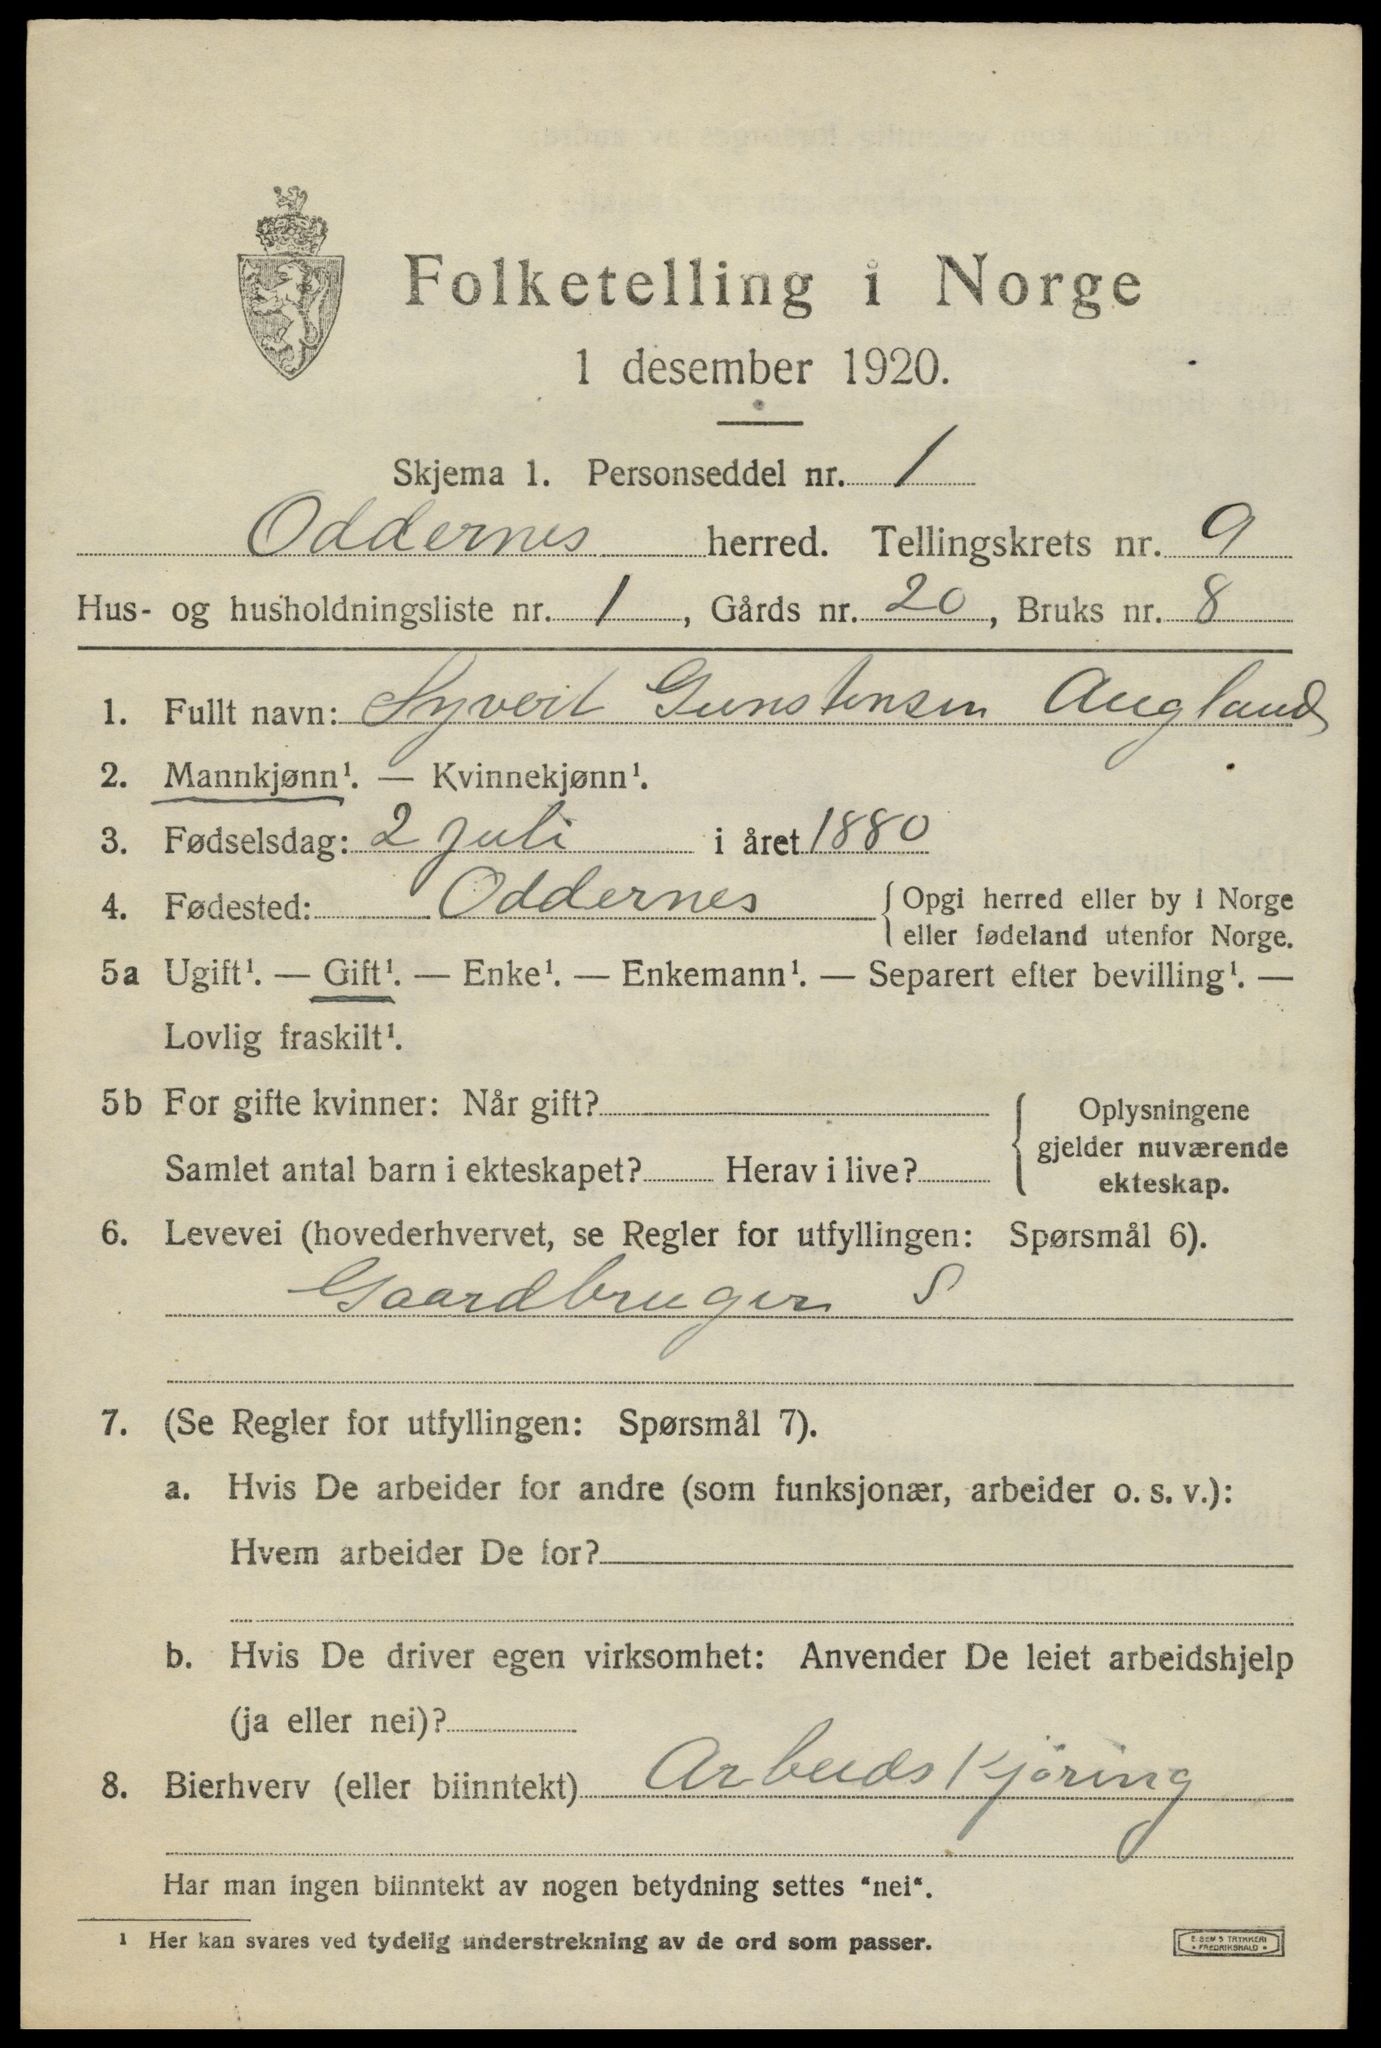 Folketelling i Norge
1 desember 1920.
Skjema 1. Personseddel nr. 1
Oddernes herred. Tellingskrets nr. 9
Hus- og husholdningsliste nr. 1, Gårds nr. 20, Bruks nr. 8
1. Fullt navn: Syvert Gunstensen Augland
2. Mannkjønn¹. — Kvinnekjønn¹.
3. Fødselsdag: 2 juli i året 1880
4. Fødested: Oddernes { Opgi herred eller by i Norge
eller fødeland utenfor Norge.
5a Ugift¹. — Gift¹. — Enke¹. — Enkemann¹. — Separert efter bevilling¹. —
Lovlig fraskilt¹.
5b For gifte kvinner: Når gift?
Samlet antal barn i ekteskapet? Herav i live?
{ Oplysningene
gjelder nuværende
ekteskap.
6. Levevei (hovederhvervet, se Regler for utfyllingen: Spørsmål 6).
Gaardbruger S
7. (Se Regler for utfyllingen: Spørsmål 7).
a. Hvis De arbeider for andre (som funksjonær, arbeider o. s. v.):
Hvem arbeider De for?
b. Hvis De driver egen virksomhet: Anvender De leiet arbeidshjelp
(ja eller nei)?
8. Bierhverv (eller biinntekt) Arbeids kjøring
Har man ingen biinntekt av nogen betydning settes "nei".
1 Her kan svares ved tydelig understrekning av de ord som passer.
E. SEM'S TRYKKERI
FREDRIKSHALD